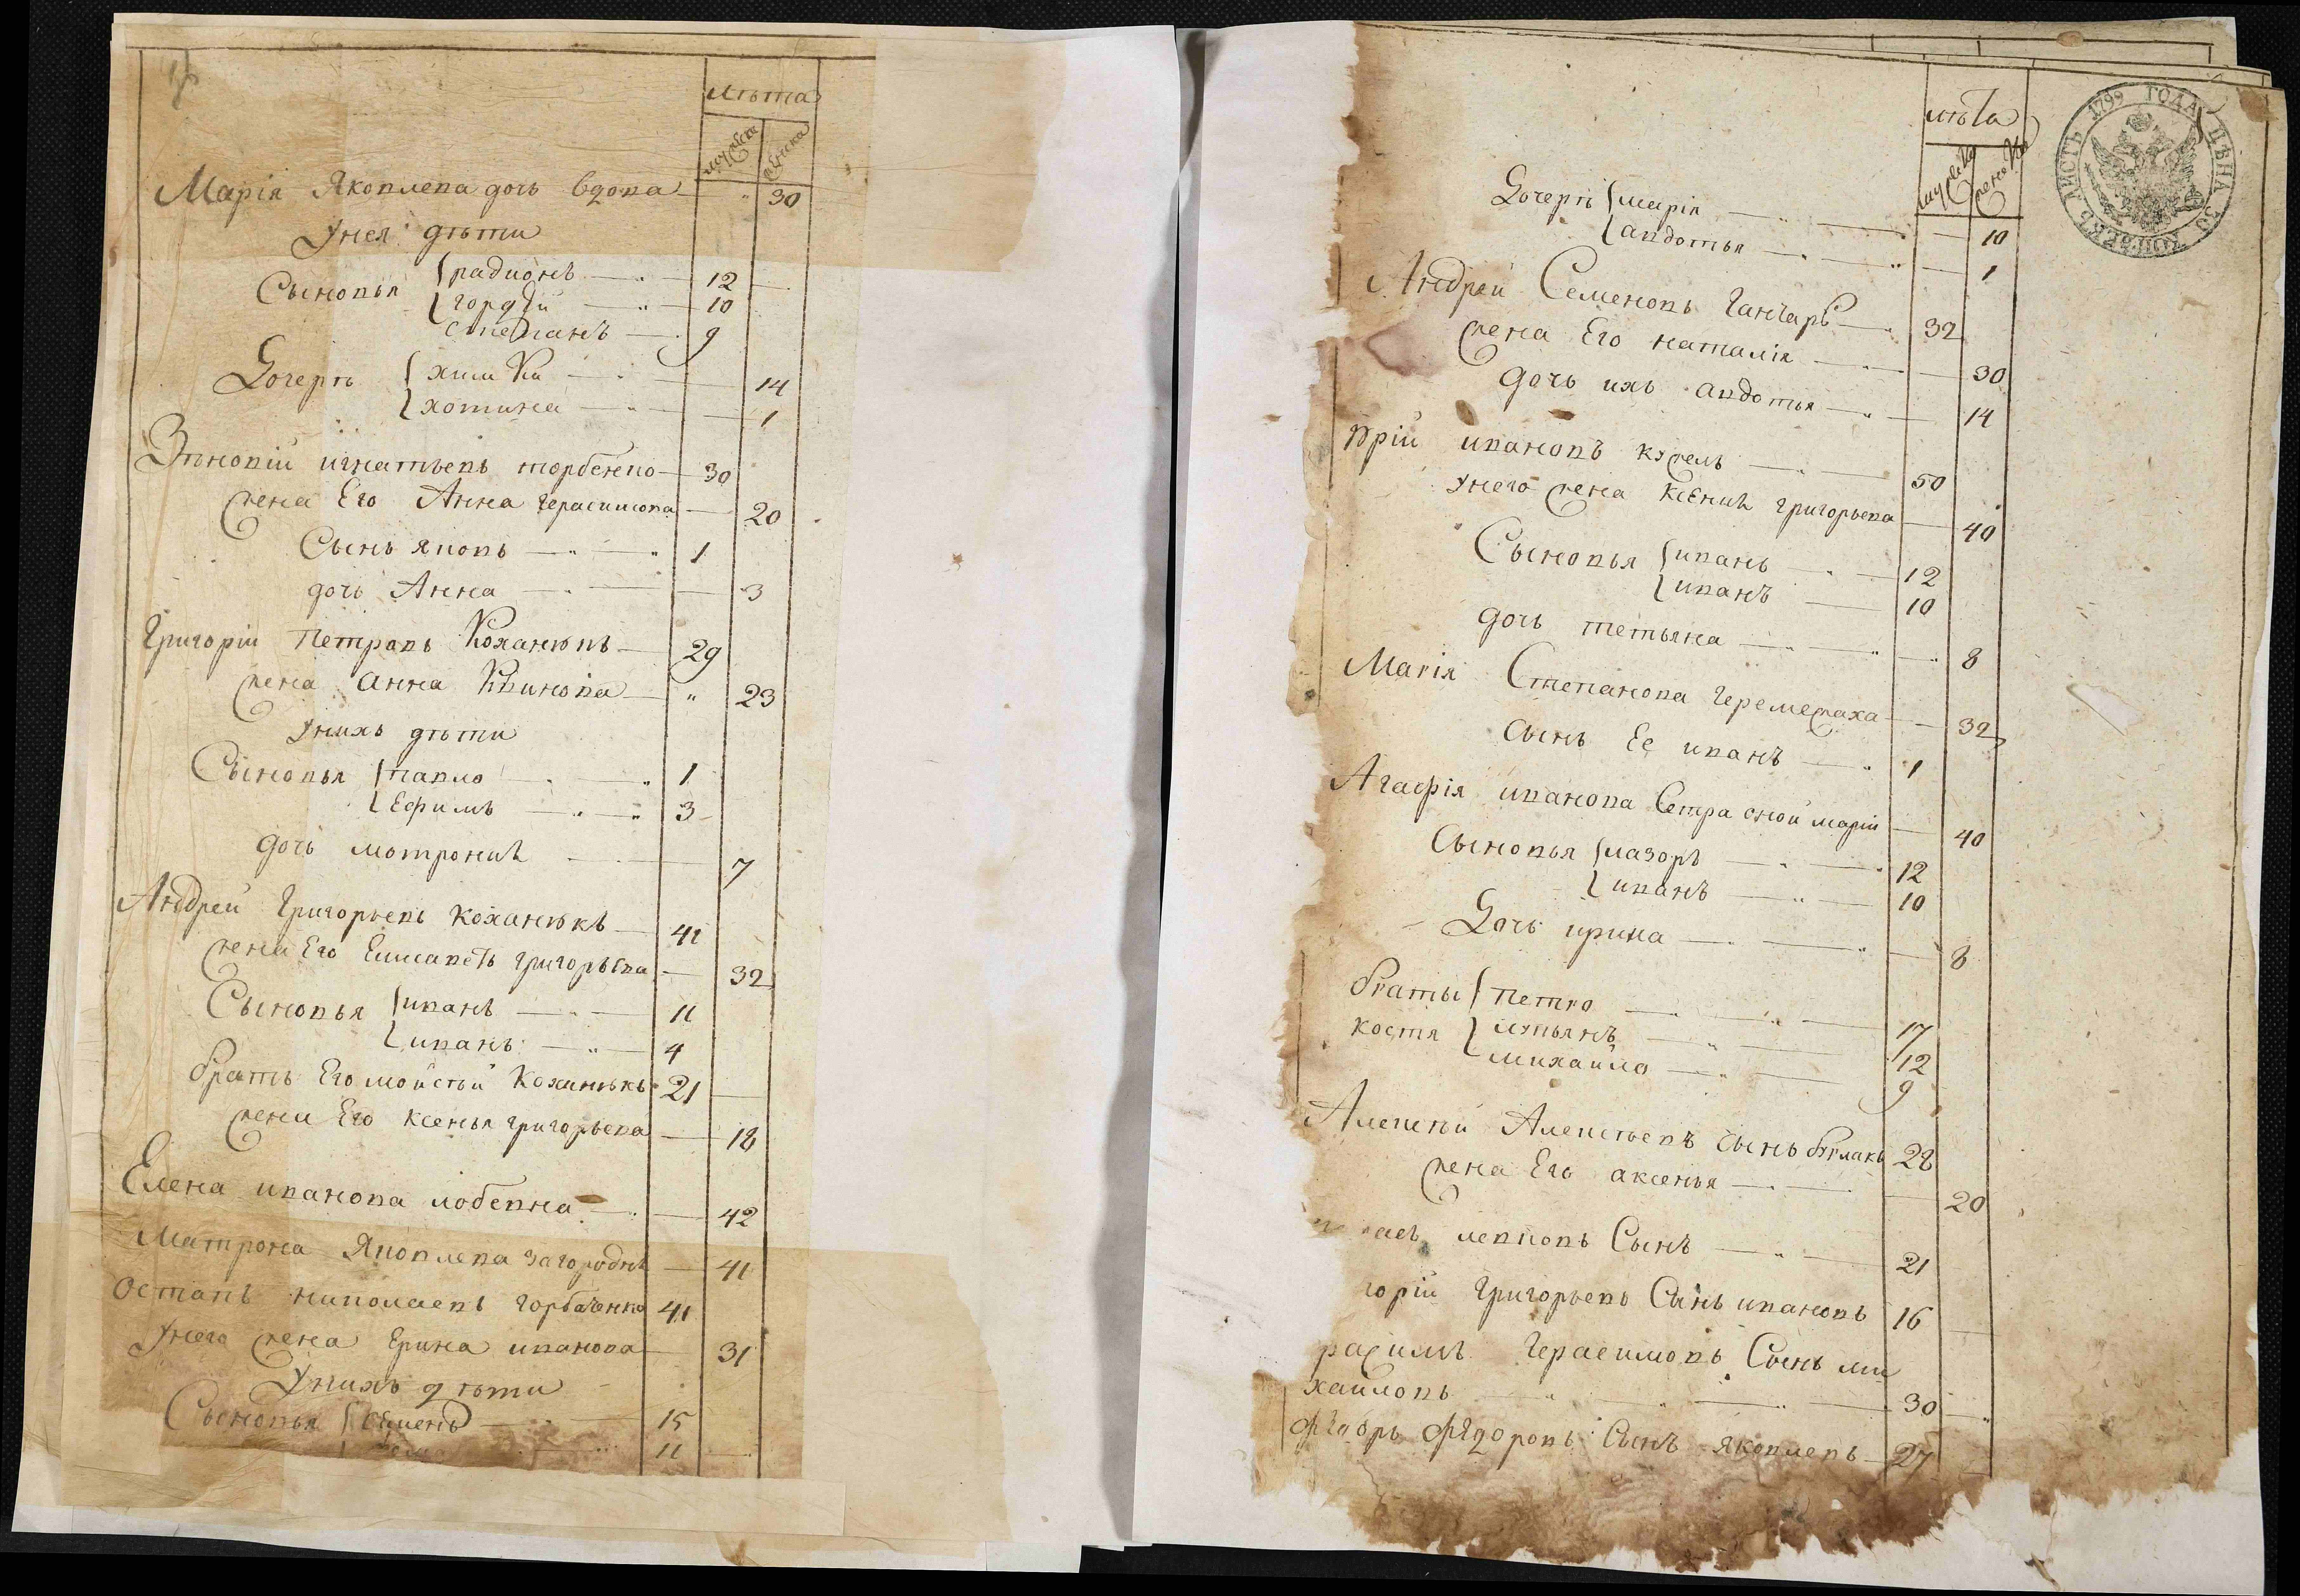 лѣта
мужеска
женска
Марія Яковлева дочь вдова " 30
унея дѣти
Сыновья радионъ 12
гордѣй 10
степанъ 9
Дочерѣ химка 14
хотина 1
Зѣновій игнатьевъ торбенко 30
жена Его Анна герасимова 20
Сынъ яковъ 1
дочь Анна 3
Григорій Петровъ Коханюкъ 29
жена Анна Квинова " 23
унихъ дѣти
Сыновья павло 1
Ефимъ 3
дочь мотрония 7
Андрей Григорьевъ коханюкъ 41
жена Его Елисаветъ григорьева 32
Сыновья иванъ 11
иванъ 4
братъ Его мойсѣй Коханюкъ 21
жена Его ксенья григорьева 18
Елена иванова лобевна 42
Матрона Яковлева загородня 41
Остапъ николаевъ горбаченко 41
унего жена Ерина иванова 31
унихъ дѣти
Сыновья семенъ 15
11
1799 ГОДА ЦѢНА 30 КОПѢЕКЪ ЛИСТЪ
лѣта
мужеска
женска
Дочерѣ марія 10
авдотья 1
Андрей Семеновъ Ганчаръ 32
жена Его наталія 30
дочь ихъ авдотья 14
юрій ивановъ кужель 50
унего жена ксения григорьева 40
Сыновья иванъ 12
иванъ 10
дочь тетьяна 8
Марія Степанова Черемежаха 32
сынъ Ее иванъ 1
Агафія иванова Сетра оной марїи 40
Сыновья лазоръ 12
иванъ 10
Дочь ирина 8
браты Петро 17
костя лупьянъ 12
михайло 9
Алексѣй Алексѣевъ сынъ бурлакъ 28
жена Его аксенья 20
левковъ Сынъ 21
горій Григорьевъ Сынъ ивановъ 16
расимъ Герасимовъ Сынъ ми
хайловъ 30
Фѣдоръ Фѣдоровъ Сынъ яковлевъ 27